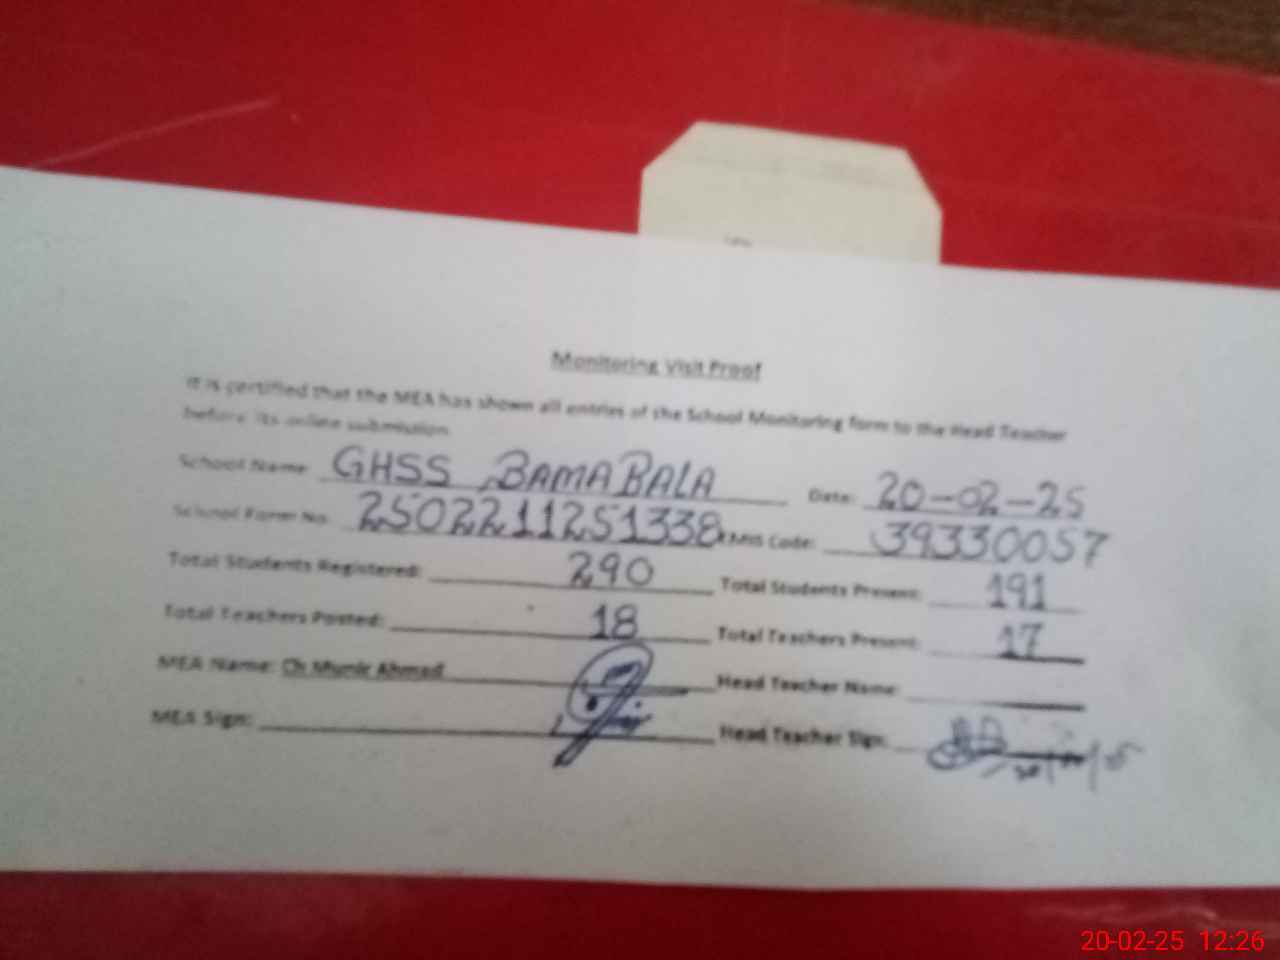 Monitoring Visit Proof
It is certified that the MEA has shown all entries of the School Monitoring form to the Head Teacher
before its online submission
School Name GHSS BAMABALA Date: 20-02-25
School Form No. 2502211251338 EMIS Code: 39330057
Total Students Registered: 290 Total Students Present: 191
Total Teachers Posted: 18 Total Teachers Present: 17
MEA Name: Ch Munir Ahmad Head Teacher Name:
MEA Sign: Head Teacher Sign:
20-02-25 12:26